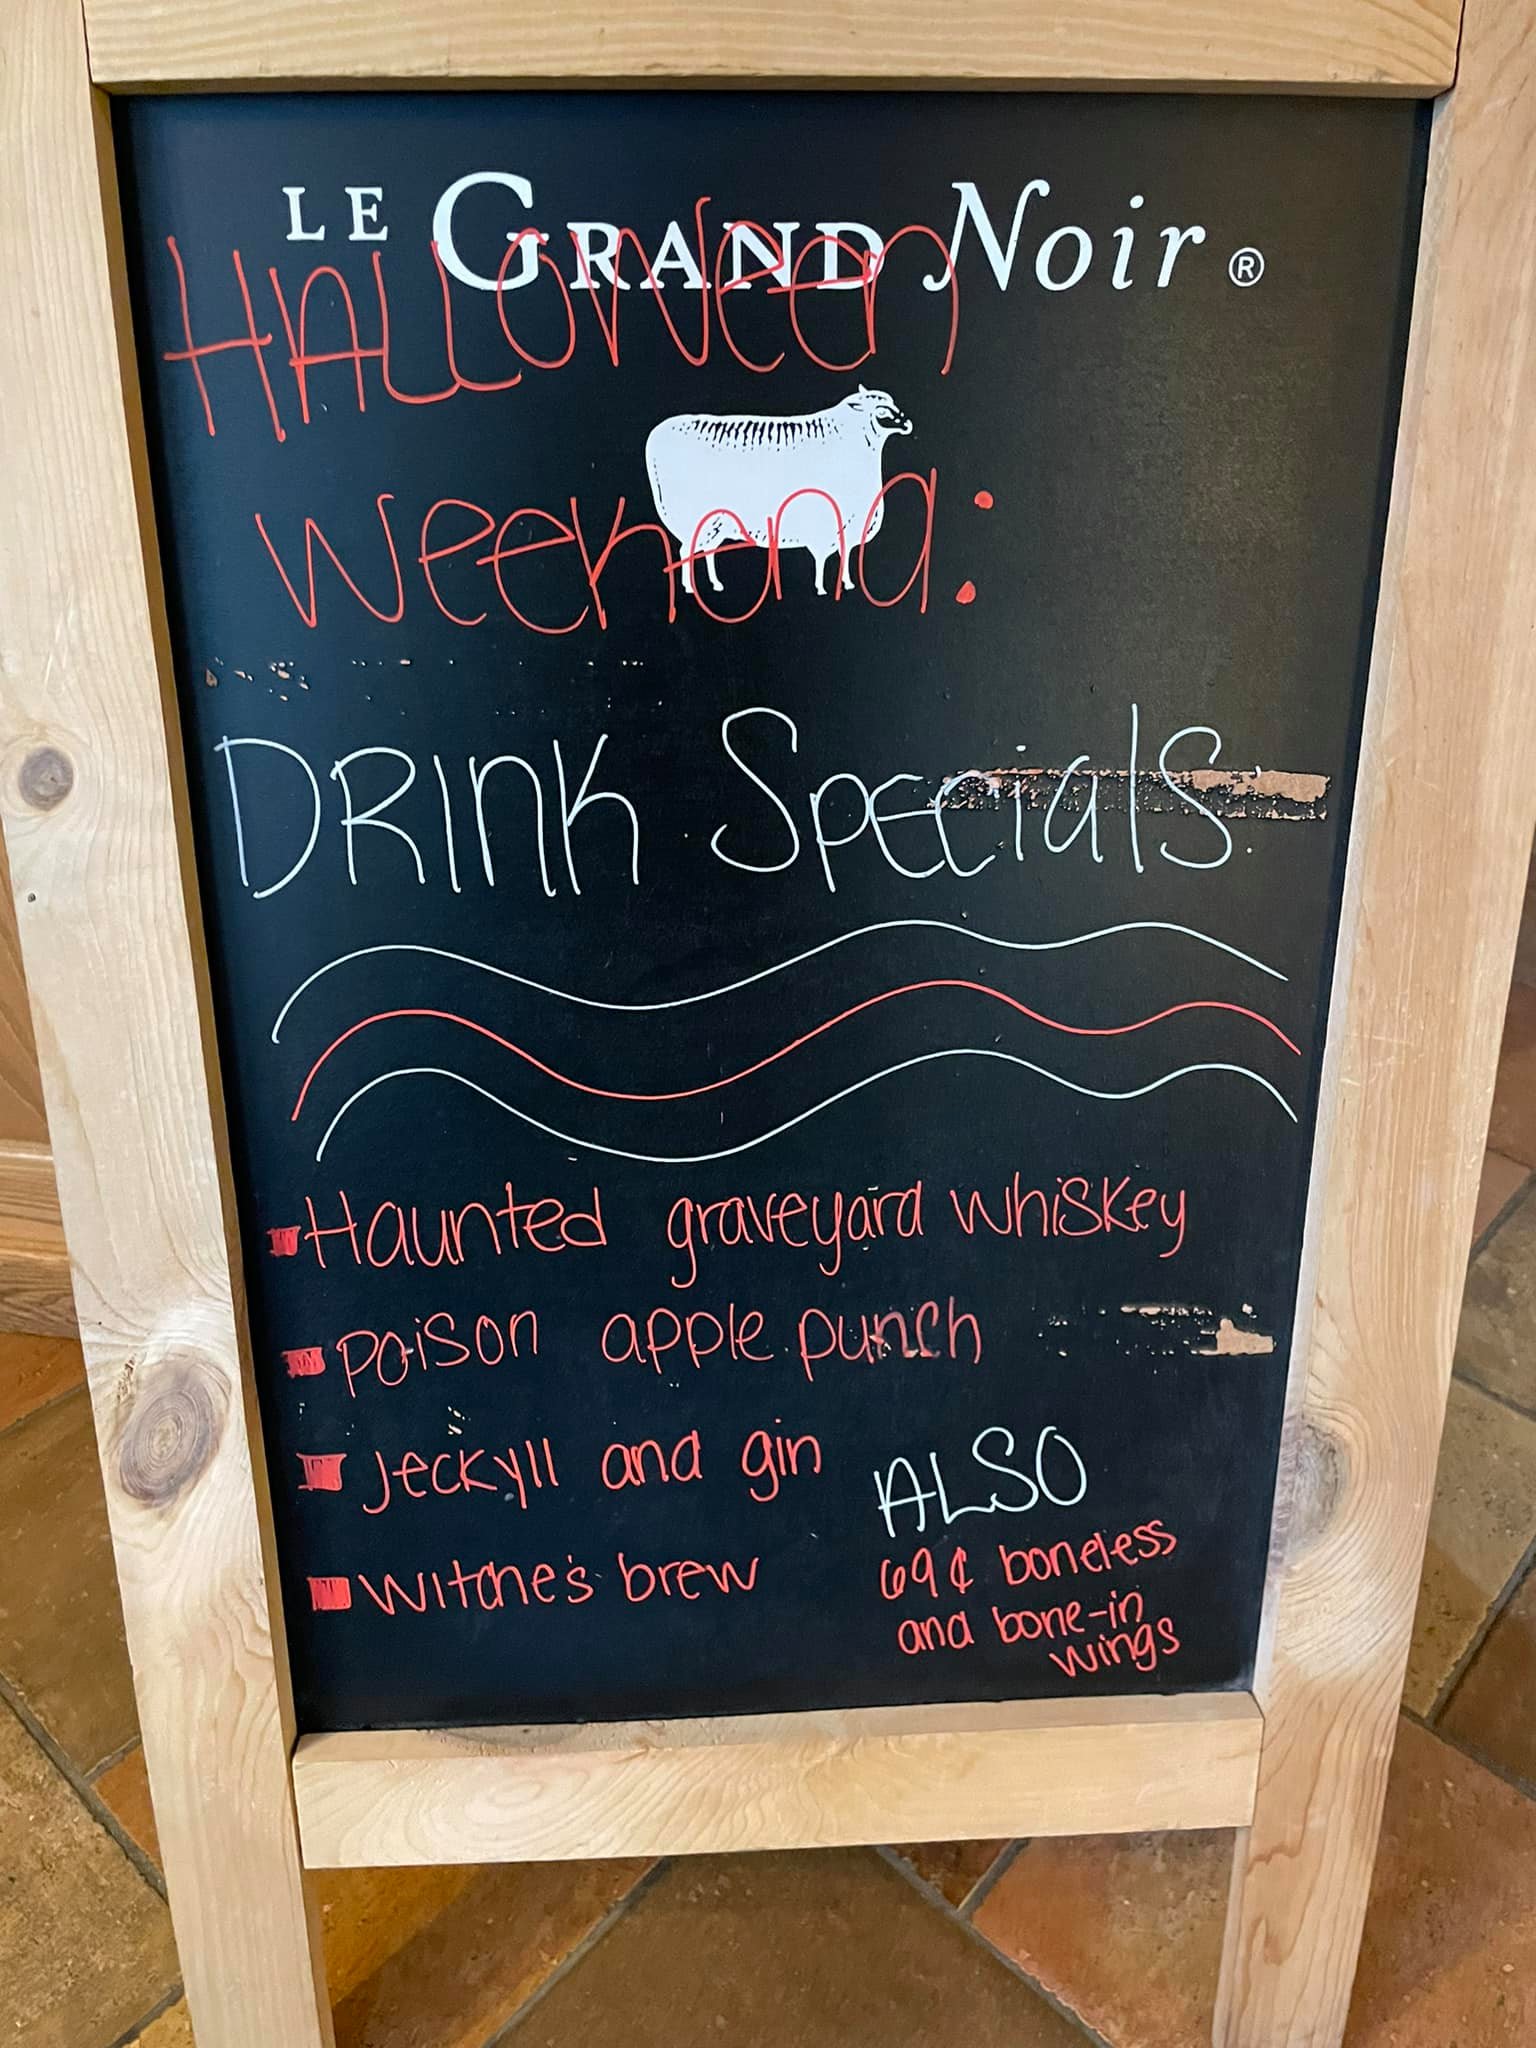 LE GRAND Noir ®
HALLOWEEN
weekend:
DRINK Specials
Haunted graveyard whiskey
poison apple punch
Jeckyll and gin
witche's brew
ALSO
69¢ boneless
and bone-in
wings